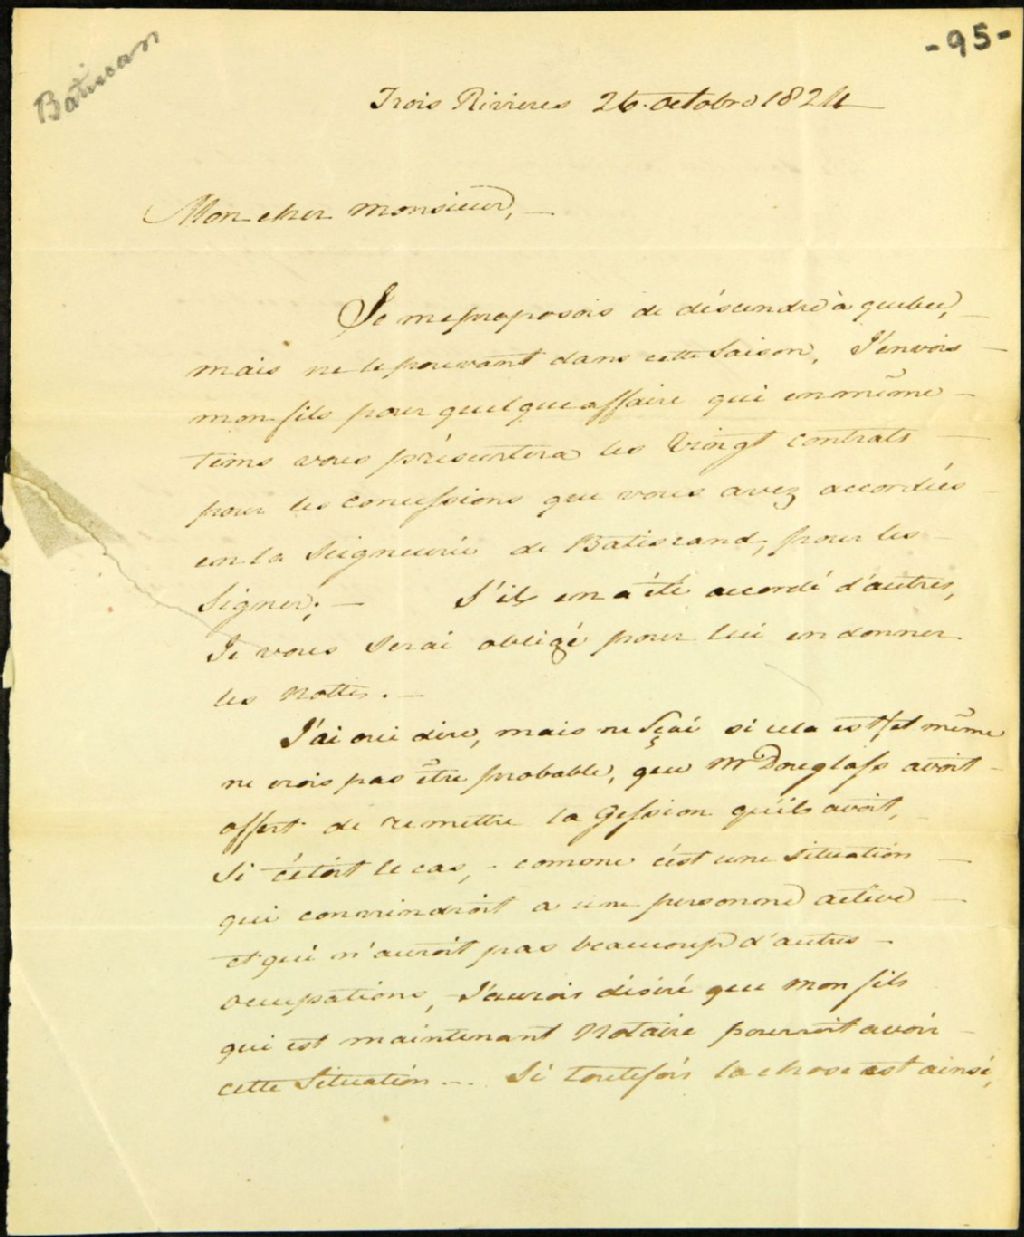 Batiscan
-95-
Trois Rivieres 26 octobre 1824
Mon cher monsieur,
Je me proposois de déscendre à quebec,
mais ne le pouvant dans cette saison, J'envois
mon fils pour quelque affaire qui en même
tems vous présentera les Vingt contrats
pour les concessions que vous avez accordées
en la Seigneurie de Batiscand, pour les
Signer; S'ils en a été accordé d'autres,
Je vous Serai obligé pour lui en donner
les Nottes.
J'ai oui dire, mais ne Sçai si cela est, et même
ne crois pas être probable, que Mr Douglass avoit
offert de remettre la Gession qu'ils avoit,
Si c'étoit le cas, comme c'est une Situation
qui conviendroit a une personne active
et qui n'auroit pas beaucoup d'autres
occupations, J'aurois désiré que mon fils
qui est maintenant Notaire pourroit avoir
cette Situation - Si toutefois la chose est ainsi,